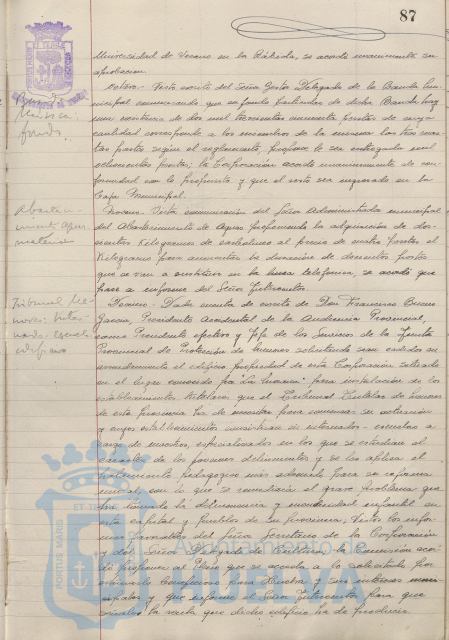 87
Universidad de Verano en la Rábida, se acordó unanimemente su
aprobación.
Octavo.- Visto escrito del Señor Gestor Delegado de la Banda Mu-
nicipal comunicando que en fondo
existencia de dos mil trescientas cincuenta pesetas de cuya
cantidad corresponde a los miembros de la misma las tres cuar-
tas partes según el reglamento, propone le sea entregada mil
ochocientas pesetas; la Corporación acordó unanimemente de con-
formidad con lo propuesto y que el resto sea ingresado en la
Caja Municipal.
Abaste-
cimiento Aguas
material
Noveno.- Vista comunicación del Señor Administrador municipal
del Abastecimiento de Aguas proponiendo la adquisición de dos-
cientos Kilogramos de carbolineo al precio de cuatro pesetas el
Kilogramo para aumentar la duración de doscientos postes
que se van a sustituir en la linea telefónica, se acordó que
pase a informe del Señor Interventor.
Tribunal Me-
nores:
edificio
Decimo.- Dada cuenta de escrito de Don Francisco Bueno
Garcia, Presidente Accidental de la Audiencia Provincial,
como Presidente efectivo y Jefe de los Servicios de la Junta
Provincial de Protección de Menores solicitando sean cedidos en
arrendamiento el edificio propiedad de esta Corporación situado
en el lugar conocido por "La" para instalación de los
establecimientos tutelares que el Tribunal Tutelar de menores
de esta provincia ha de necesitar para comenzar su actuación
y cuyos establecimientos consistirán en internados - escuelas a
cargo de maestros, especializados en los que se estudiará el
carácter de los jovenes delincuentes y se les aplicará el
tratamiento pedagogico más adecuado para su reforma
moral, con lo que se remediaría el grave problema que
ha la delincuencia y mendicidad infantil en
esta capital y pueblos de su provincia; Vistos los infor-
mes formulados del Señor Secretario de la Corporación
y del Señor Delegado de Cultura, la Comisión acor-
dó proponer al Pleno que se acceda a lo solicitado por
estimarlo beneficioso para Huelva y sus intereses muni-
cipales y que informe el Señor Interventor para que
señale la renta que dicho edificio ha de producir.
PORTUS MARIS
ET TERRAE
Ayuntamiento de